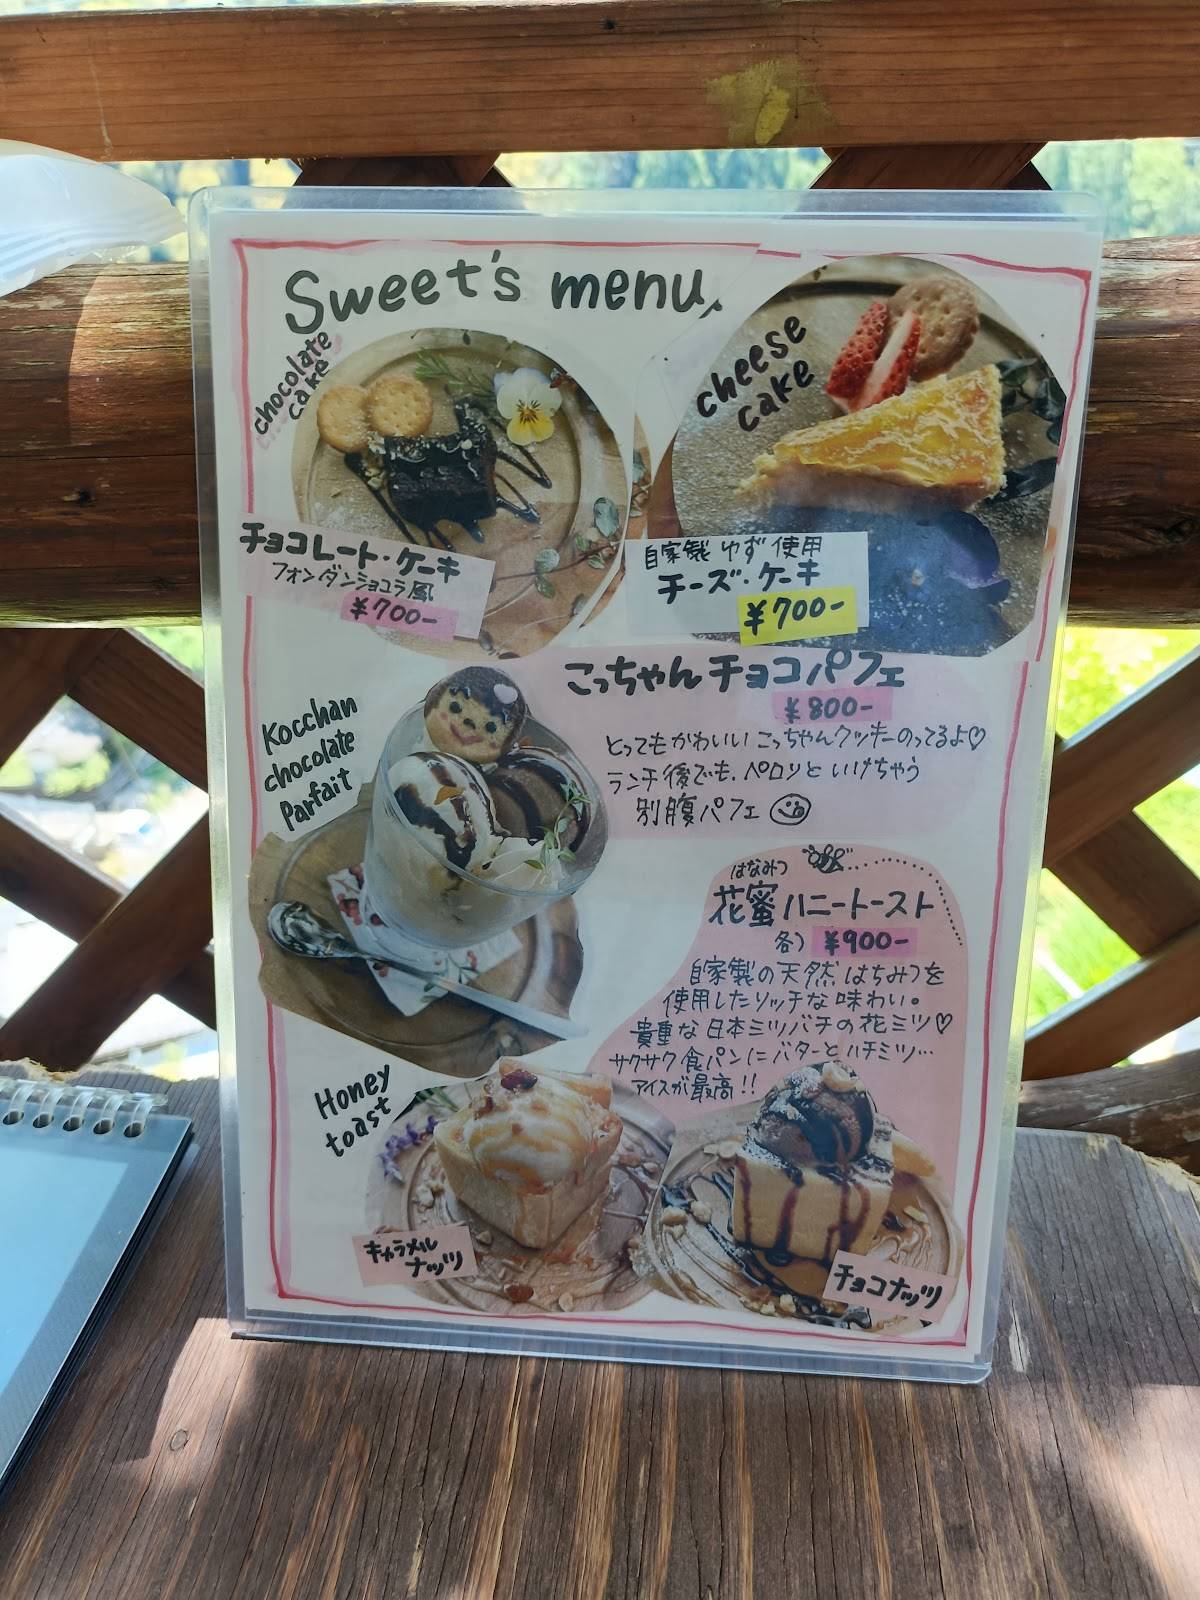 Sweet's menu
chocolate
cake
チョコレート・ケーキ
フォンダンショコラ風
¥700-
cheese
cake
自家製 ゆず 使用
チーズ・ケーキ
¥700-
Kocchan
chocolate
Parfait
こっちゃんチョコパフェ
¥800-
とってもかわいいこっちゃんクッキーのってるよ♡
ランチ後でも、ペロリといけちゃう
別腹パフェ
はなみつ
花蜜ハニートースト
各) ¥900-
自家製の天然はちみつを
使用したリッチな味わい。
貴重な日本ミツバチの花ミツ♡
サクサク食パンにバターとハチミツ…
アイスが最高!!
Honey
toast
キャラメル
ナッツ
チョコナッツ